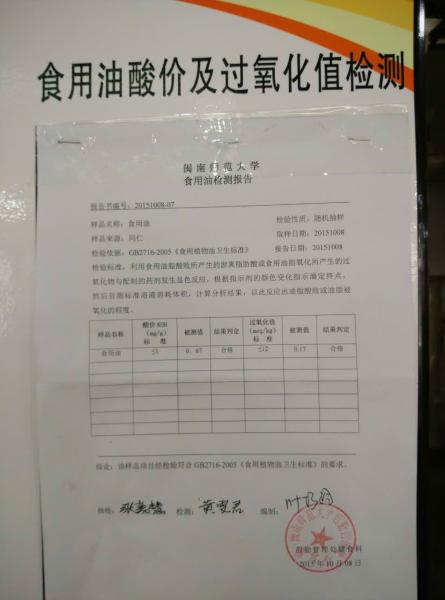 食用油酸价及过氧化值检测
闽南师范大学
食用油检测报告
报告书编号：20151008-07
样品名称：食用油 检验性质：随机抽样
样品来源：同仁 取样日期：20151008
检验依据：GB2716-2005《食用植物油卫生标准》 报告日期：20151008
检验标准：利用食用油脂酸败所产生的游离脂肪酸或食用油脂氧化所产生的过
氧化物与配制的药剂发生显色反应，根据指示剂的颜色变化指示滴定终点，
然后目测标准溶液消耗体积，计算分析结果，以此反应出油脂酸败或油脂被
氧化的程度。
样品名称 酸价 KOH (mg/g) 标 准 被测值 结果判定 过氧化值 (meq/kg) 标 准 被测值 结果判定
食用油 ≤3 0.67 合格 ≤12 0.17 合格
结论：该样品项目经检验符合 GB2716-2005《食用植物油卫生标准》的要求。
检测： 编制：
后勤管理处膳食科
2015 年 10 月 08 日